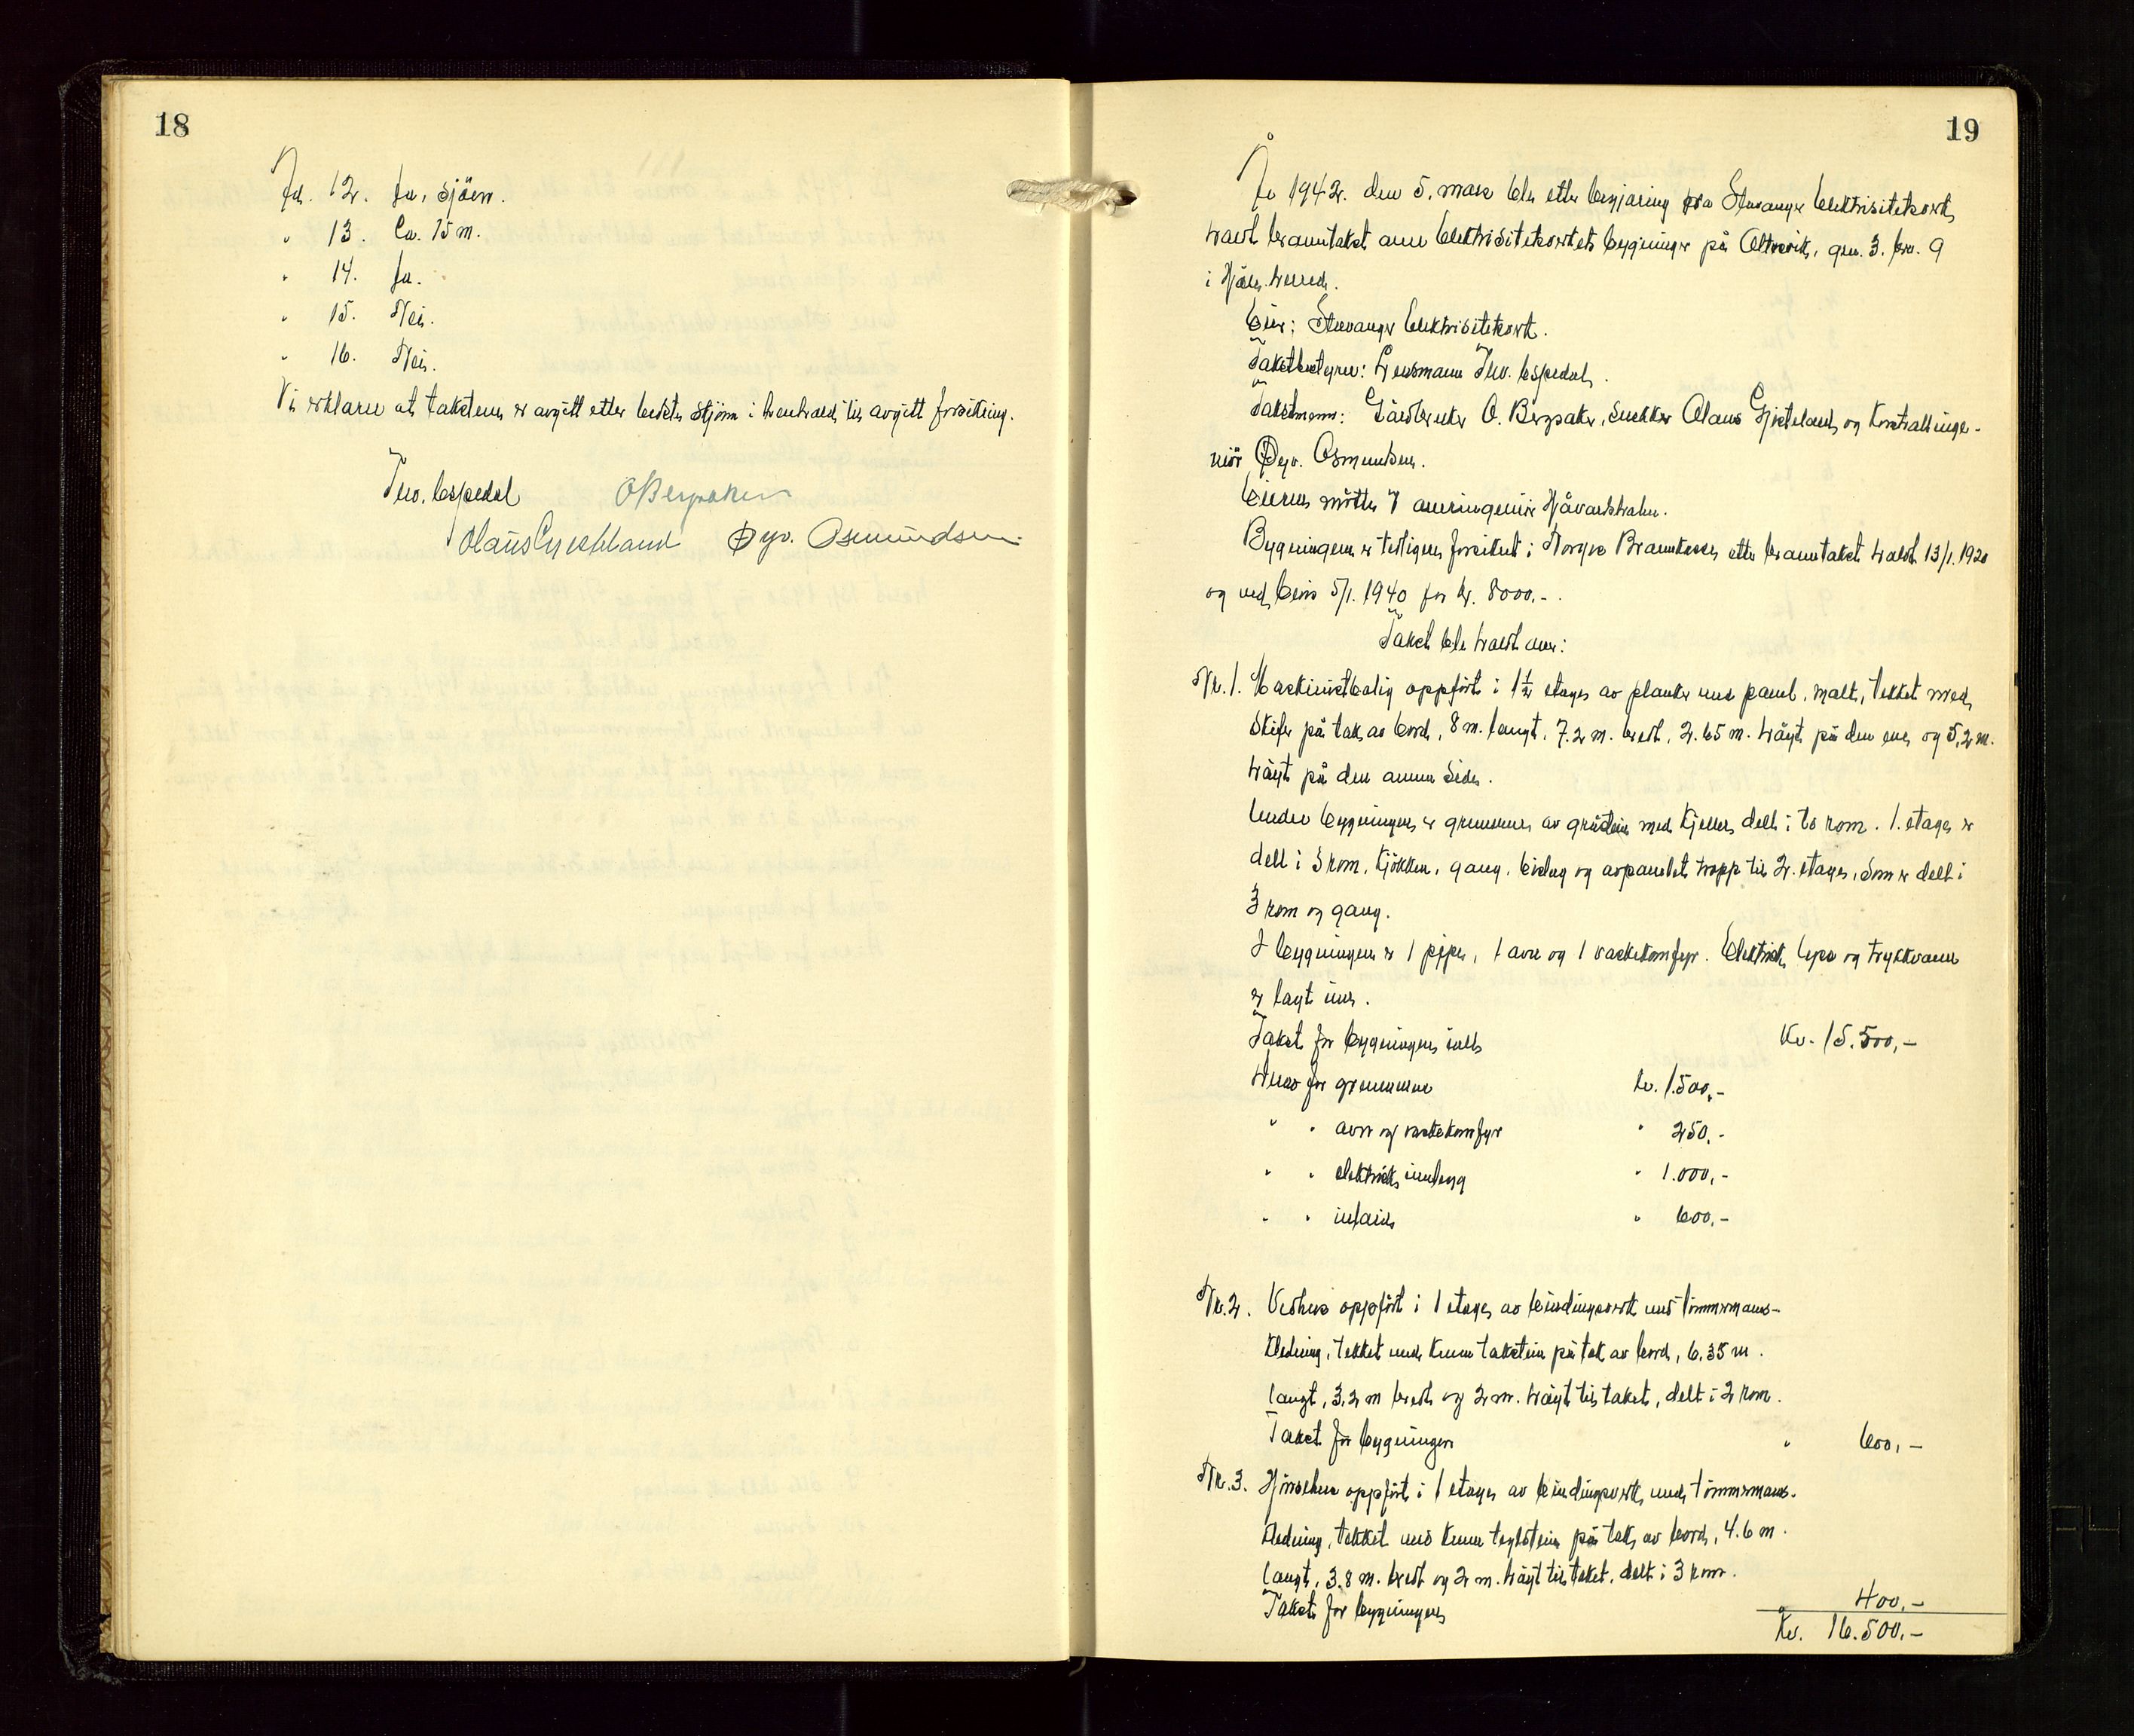 18
Ad. 12. Ja, sjöen.
" 13. Ca. 75 m.
" 14. Ja.
" 15. Nei.
" 16. Nei.
Vi erklærer at taksten er avgitt etter beste skjönn i henhold til avgitt forsikring.
Theo. Espedal O Bergsaker
Olaus Gjesteland Øyv. Osmundsen
19
År 1942. den 5. mars ble etter begjæring fra Stavanger Elektrisitetsverk
holdt branntakst over Elektrisitetsverkets bygninger på Oltesvik, gnr. 3. bnr. 9
i Hjelm. herred.
Eier: Stavanger Elektrisitetsverk.
Takstbestyrer: Lensmann Theo. Espedal.
Takstmenn: Gårdbruker O. Bergsaker, snekker Olaus Gjesteland og Kontrollinge-
niör Øyv. Osmundsen.
Eieren mötte ved overingeniör Håvardsholm.
Bygningene er tidligere forsikret i Norges Brannkasse etter branntakst holdt 13/1. 1920
og ved brev 5/1. 1940 for kr. 8000.-.
Takst ble holdt over:
Nr. 1. Maskinistbolig oppfört i 1½ etages av planker med panel, malt, tekket med
skifer på tak av bord, 8 m. langt, 7.2 m. bredt, 2.65 m. högt på den ene og 5,2 m.
högt på den annen side.
Under bygningen er grunnmur av gråstein med kjeller, delt i to rom. 1. etage er
delt i 3 rom, kjökken, gang, bislag og avpanelet trapp til 2. etage, som er delt i
3 rom og gang.
I bygningen er 1 pipe, 1 ovn og 1 vaskekomfyr. Elektrisk lys og trykkvann
er lagt inn.
Takst for bygningen ialt Kr. 15.500,-
Herav for grunnmur kr. 1.500,-
" " ovn og vaskekomfyr " 250.-
" " elektrisk innlegg " 1.000,-
" " inlaid " 600,-
Nr. 2. Vedhus oppfört i 1 etage av bindingsverk med tömmermans-
kledning, tekket med krum takstein på tak av bord, 6.35 m.
langt, 3,2 m bredt og 2 m. högt til taket, delt i 2 rom.
Takst for bygningen " 600,-
Nr. 3. Hönsehus oppfört i 1 etage av bindingsverk med tömmermans-
kledning, tekket med krum teglstein på tak av bord, 4.6 m.
langt, 3.8 m. bredt og 2 m. högt til taket, delt i 3 rom.
Takst for bygningen 400.-
Kr. 16.500.-